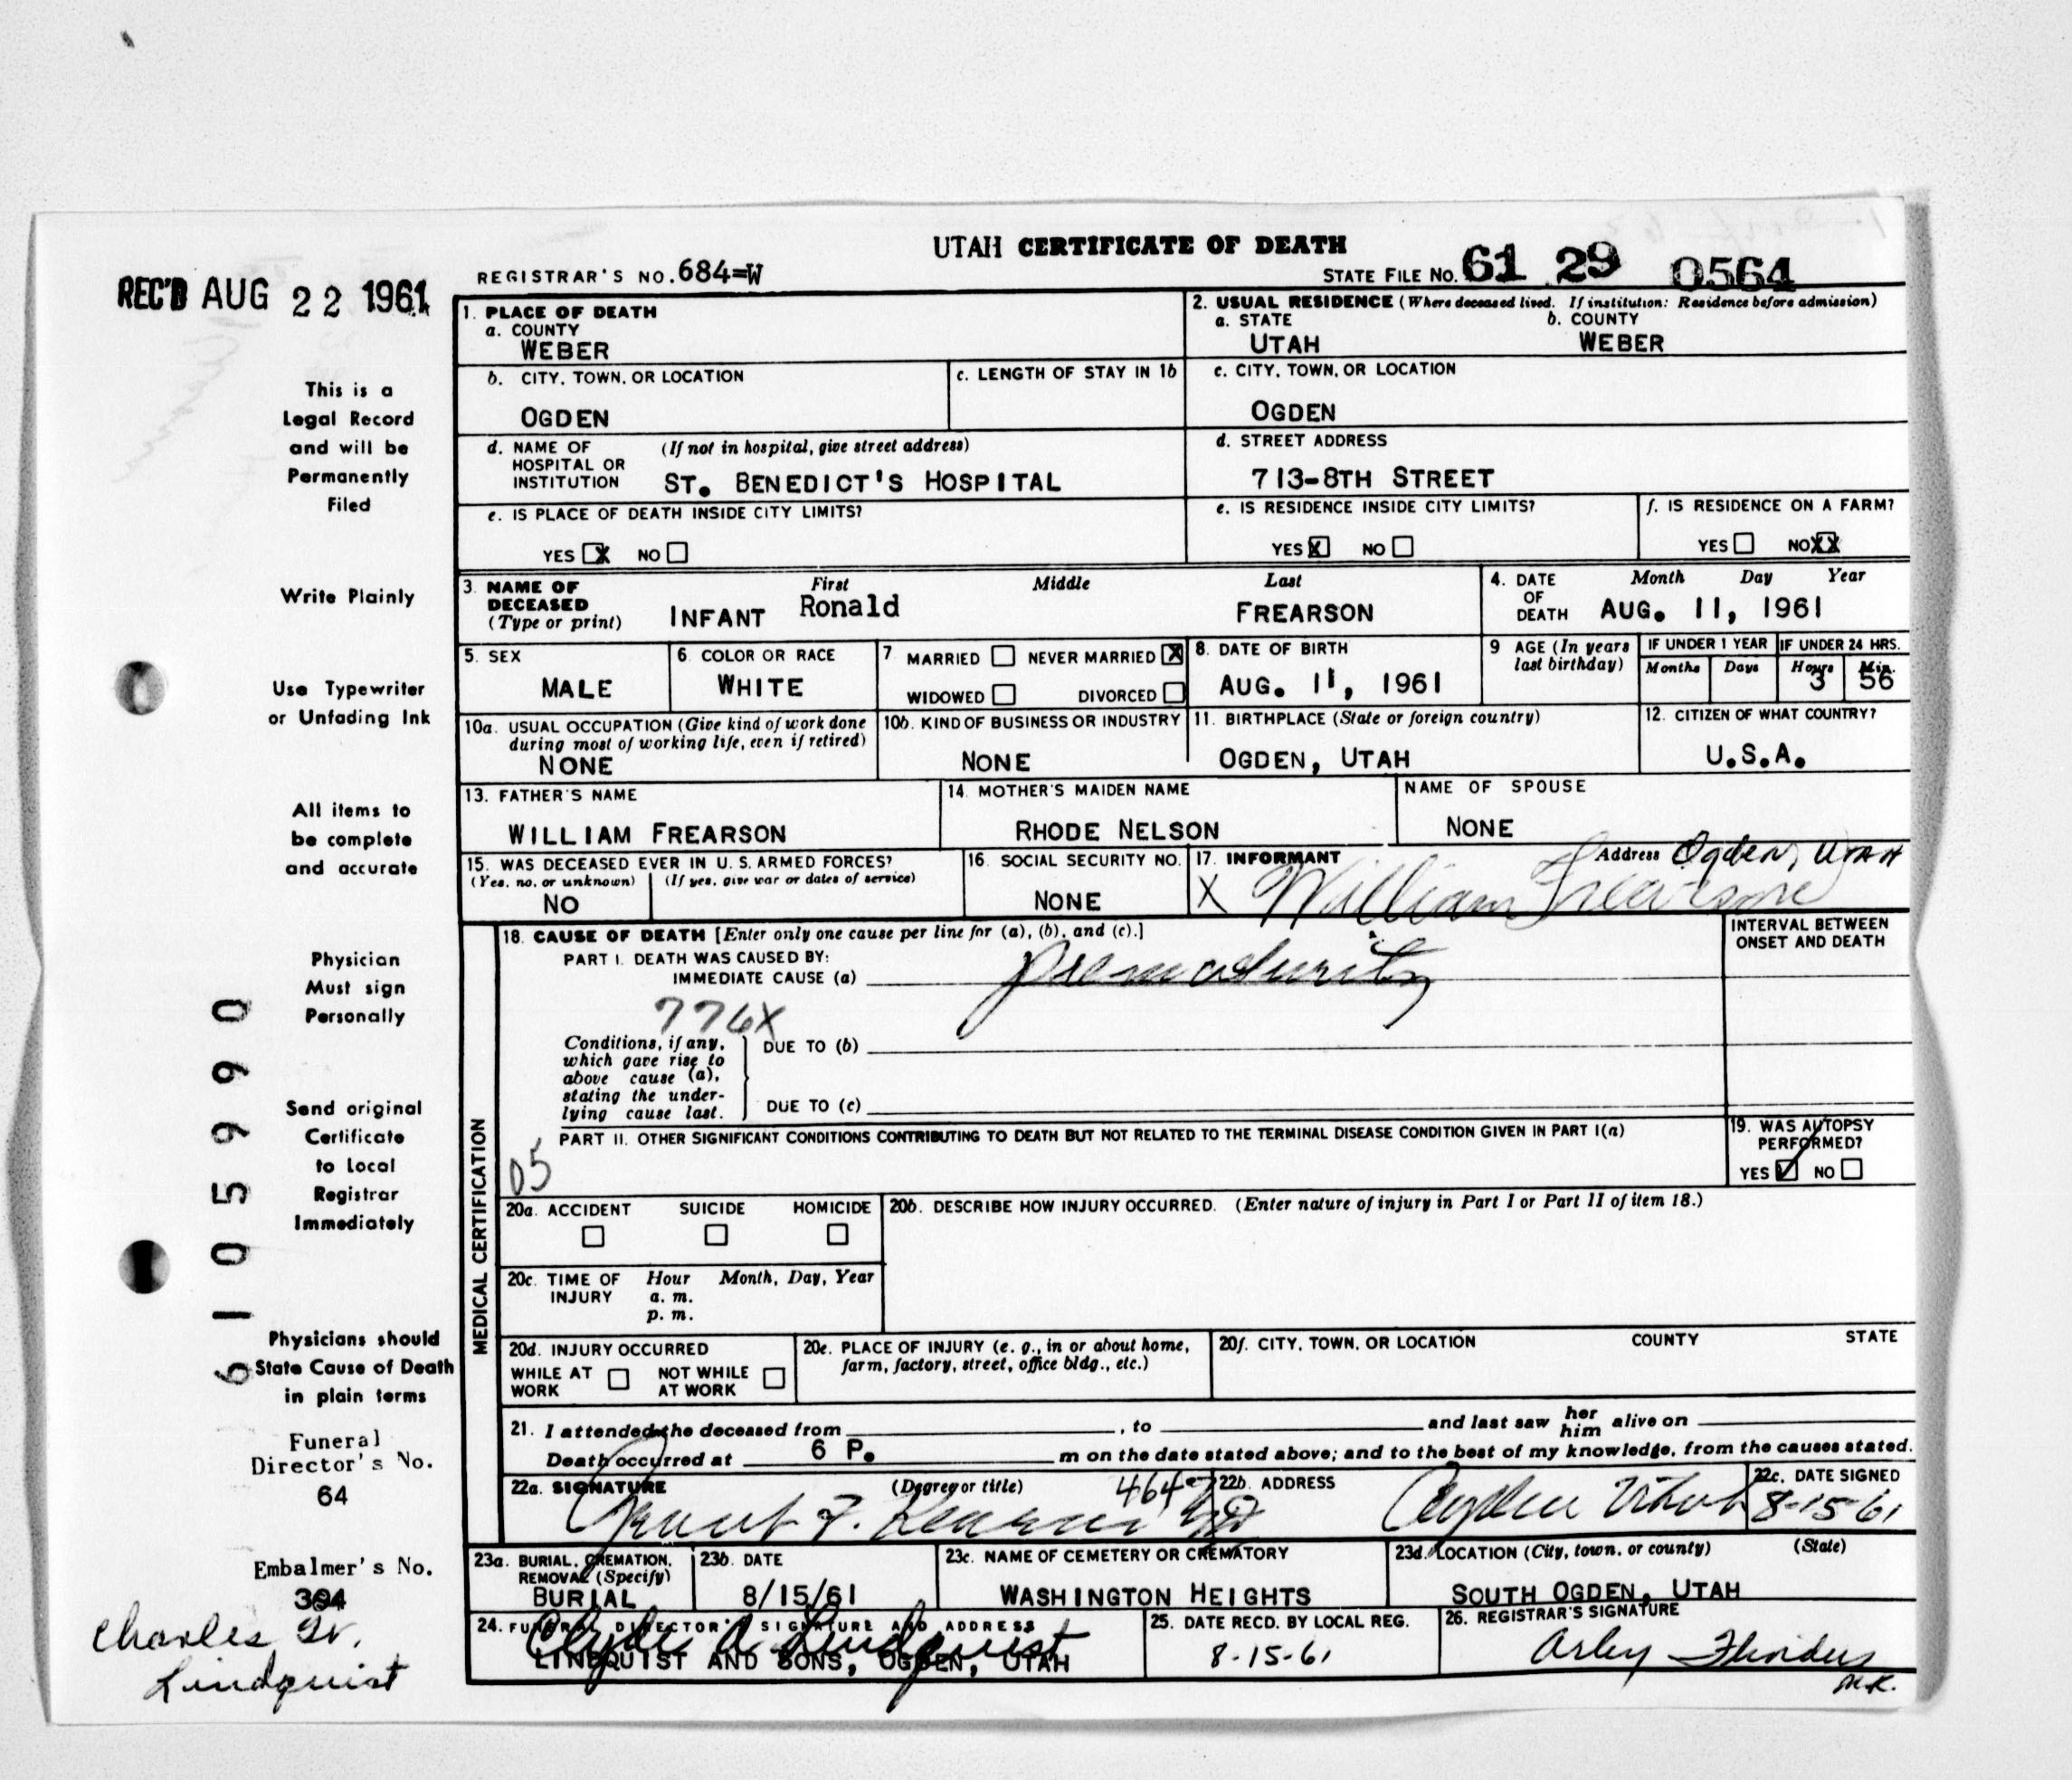 UTAH CERTIFICATE OF DEATH
REGISTRAR'S NO. 684=W
STATE FILE NO. 61 29 0564
REC'D AUG 22 1961
This is a
Legal Record
and will be
Permanently
Filed
Write Plainly
Use Typewriter
or Unfading Ink
All items to
be complete
and accurate
Physician
Must sign
Personally
Send original
Certificate
to Local
Registrar
Immediately
Physicians should
State Cause of Death
in plain terms
Funeral
Director's No.
64
Embalmer's No.
304
Charles Gr.
Lindquist
6 1 0 5 9 9 0
1. PLACE OF DEATH
a. COUNTY
WEBER
2. USUAL RESIDENCE (Where deceased lived. If institution: Residence before admission)
a. STATE b. COUNTY
UTAH WEBER
b. CITY, TOWN, OR LOCATION
OGDEN
c. LENGTH OF STAY IN 1b
c. CITY, TOWN, OR LOCATION
OGDEN
d. NAME OF HOSPITAL OR INSTITUTION (If not in hospital, give street address)
ST. BENEDICT'S HOSPITAL
d. STREET ADDRESS
713-8TH STREET
e. IS PLACE OF DEATH INSIDE CITY LIMITS?
YES X NO
e. IS RESIDENCE INSIDE CITY LIMITS?
YES X NO
f. IS RESIDENCE ON A FARM?
YES NO XX
3. NAME OF DECEASED (Type or print)
First Middle Last
INFANT Ronald FREARSON
4. DATE OF DEATH
Month Day Year
AUG. 11, 1961
5. SEX
MALE
6. COLOR OR RACE
WHITE
7. MARRIED NEVER MARRIED X
WIDOWED DIVORCED
8. DATE OF BIRTH
AUG. 11, 1961
9. AGE (In years last birthday)
IF UNDER 1 YEAR IF UNDER 24 HRS.
Months Days Hours Min.
3 56
10a. USUAL OCCUPATION (Give kind of work done during most of working life, even if retired)
NONE
10b. KIND OF BUSINESS OR INDUSTRY
NONE
11. BIRTHPLACE (State or foreign country)
OGDEN, UTAH
12. CITIZEN OF WHAT COUNTRY?
U.S.A.
13. FATHER'S NAME
WILLIAM FREARSON
14. MOTHER'S MAIDEN NAME
RHODE NELSON
NAME OF SPOUSE
NONE
15. WAS DECEASED EVER IN U. S. ARMED FORCES?
(Yes, no, or unknown) (If yes, give war or dates of service)
NO
16. SOCIAL SECURITY NO.
NONE
17. INFORMANT Address Ogden, Utah
X William Frearson
MEDICAL CERTIFICATION
18. CAUSE OF DEATH [Enter only one cause per line for (a), (b), and (c).]
PART I. DEATH WAS CAUSED BY:
IMMEDIATE CAUSE (a) prematurity
INTERVAL BETWEEN ONSET AND DEATH
776X
Conditions, if any, which gave rise to above cause (a), stating the underlying cause last.
DUE TO (b)
DUE TO (c)
PART II. OTHER SIGNIFICANT CONDITIONS CONTRIBUTING TO DEATH BUT NOT RELATED TO THE TERMINAL DISEASE CONDITION GIVEN IN PART I(a)
05
19. WAS AUTOPSY PERFORMED?
YES NO
20a. ACCIDENT SUICIDE HOMICIDE
20b. DESCRIBE HOW INJURY OCCURRED. (Enter nature of injury in Part I or Part II of item 18.)
20c. TIME OF INJURY Hour Month, Day, Year
a. m.
p. m.
20d. INJURY OCCURRED
WHILE AT WORK NOT WHILE AT WORK
20e. PLACE OF INJURY (e. g., in or about home, farm, factory, street, office bldg., etc.)
20f. CITY, TOWN, OR LOCATION COUNTY STATE
21. I attended the deceased from , to and last saw her him alive on
Death occurred at 6 P. m on the date stated above; and to the best of my knowledge, from the causes stated.
22a. SIGNATURE (Degree or title)
22b. ADDRESS
Ogden Utah
22c. DATE SIGNED
8-15-61
23a. BURIAL, CREMATION, REMOVAL (Specify)
BURIAL
23b. DATE
8/15/61
23c. NAME OF CEMETERY OR CREMATORY
WASHINGTON HEIGHTS
23d. LOCATION (City, town, or county) (State)
SOUTH OGDEN, UTAH
24. FUNERAL DIRECTOR'S SIGNATURE AND ADDRESS
Clyde A Lindquist
LINDQUIST AND SONS, OGDEN, UTAH
25. DATE RECD. BY LOCAL REG.
8-15-61
26. REGISTRAR'S SIGNATURE
Arley Flinders
M.K.